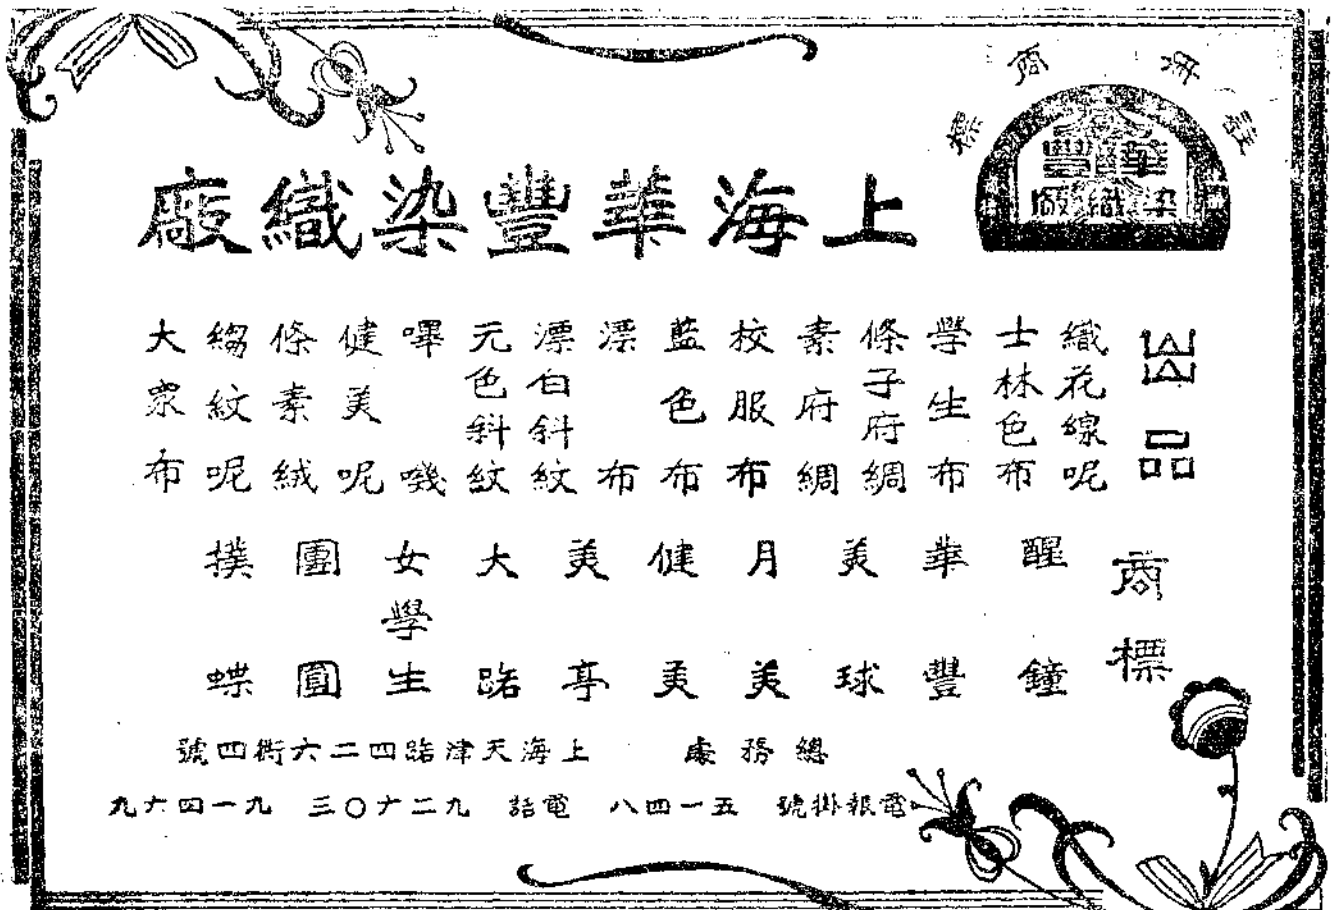 註冊商標
華豐
染織廠
上海華豐染織廠
出品
織花線呢
士林色布
學生布
條子府綢
素府綢
校服布
藍色布
漂布
漂白斜紋
元色斜紋
嗶嘰
健美呢
條素絨
縐紋呢
大衆布
商標
醒鐘
華豐
美球
月美
健美
美亭
大路
女學生
團圓
撲蝶
總務處 上海天津路四二六衖四號
電報掛號 五一四八 電話 九二六〇三 九一四六九